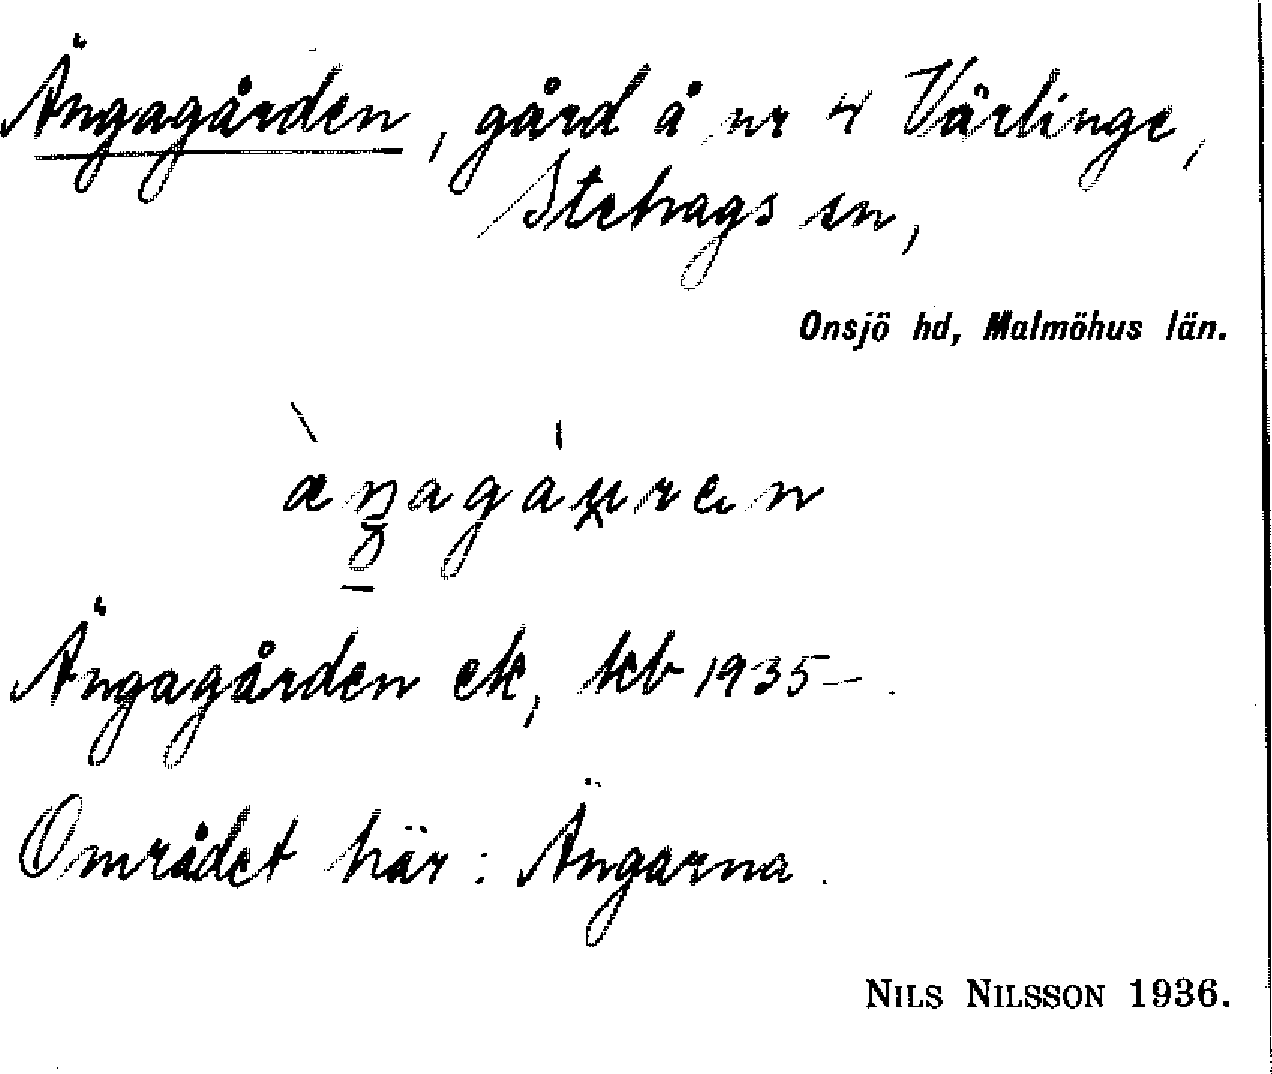 Ängagården, gård å nr 4 Värlinge,
Stehags sn,
Onsjö hd, Malmöhus län.
Ängagården ek, kb 1935–.
Området här: Ängarna.
NILS NILSSON 1936.